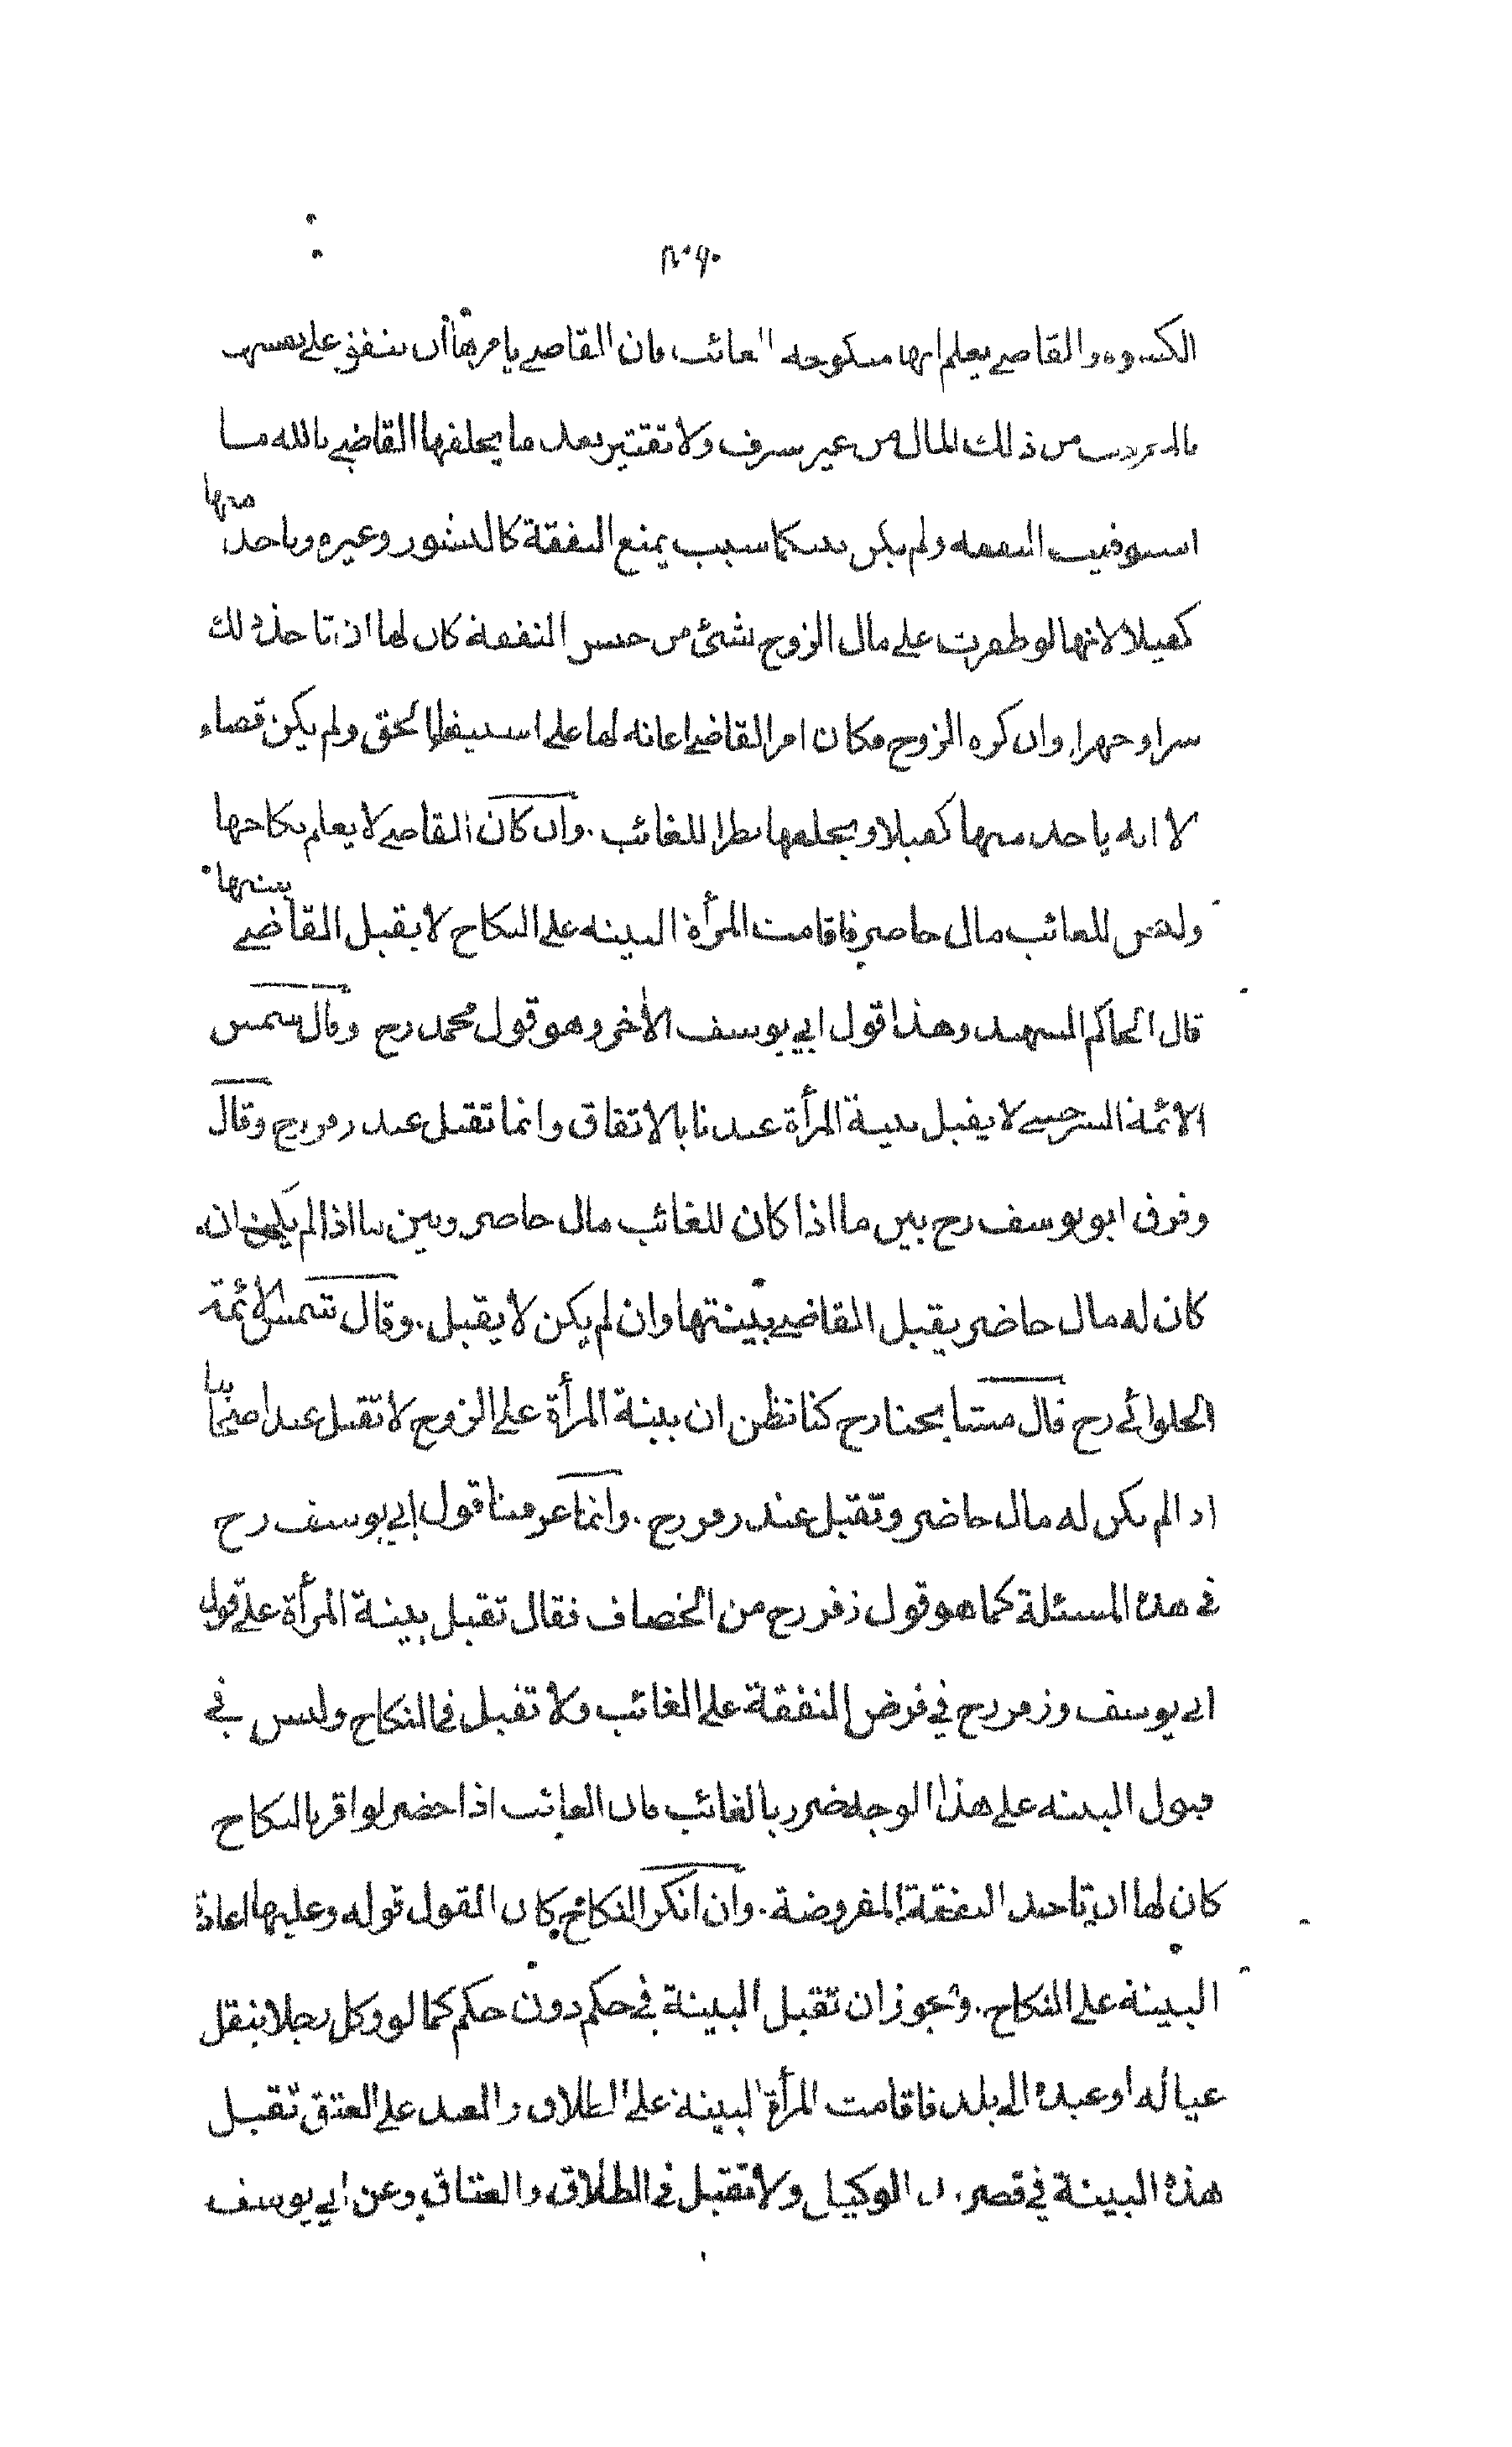 الكسوة والقاضي يعلم انها منكوحه الغائب فان القاضي يامرها ان تنفق على نفسها
بالمعروف من ذلك المال من غير سرف ولا تقتير بعد ما يحلفها القاضي بالله ما
استوفيت النفقه ولم يكن بينكما سبب يمنع النفقة كالنشوز وغيره وياخذ منها
كفيلا لانها لو ظفرت على مال الزوج بشئ من جنس النفقة كان لها ان تاخذ ذلك
سرا وجهرا وان كره الزوج فكان امر القاضي اعانه لها على استيفاء الحق ولم يكن قضاء
لا انه ياخذ منها كفيلا ويحلفها نظرا للغائب . وان كان القاضي لا يعلم بنكاحها
وليس للغائب مال حاضر فاقامت المرأة البينه على النكاح لا يقبل القاضي بينتها
قال الحاكم الشهيد وهذا قول ابي يوسف الأخر وهو قول محمد رح وقال شمس
الائمة السرخسي لا يقبل بينة المرأة عندنا بالاتفاق وانما تقبل عند زفر رح وقال
وفرق ابو يوسف رح بين ما اذا كان للغائب مال حاضر وبين ما اذا لم يكن ان
كان له مال حاضر يقبل القاضي بينتها وان لم يكن لا يقبل . وقال شمس الأئمة
الحلوائي رح قال مشايخنا رح كنا نظن ان بينة المرأة على الزوج لا تقبل عند اصحابنا
اذا لم يكن له مال حاضر وتقبل عند زفر رح . وانما عرفنا قول ابي يوسف رح
في هذه المسئلة كما هو قول زفر رح من الخصاف فقال تقبل بينة المرأة على قول
ابي يوسف وزفر رح في فرض النفقة على الغائب ولا تقبل في النكاح وليس في
قبول البينه على هذا الوجه ضرر بالغائب فان الغائب اذا حضر لو اقر بالنكاح
كان لها ان تاخذ النفقة المفروضة . وان انكر النكاح كان القول قوله وعليها اعادة
البينة على النكاح . ويجوز ان تقبل البينة في حكم دون حكم كما لو وكل رجلا بنقل
عياله او عبده الى بلد فاقامت المرأة البينة على الطلاق والعبد على العتق تقبل
هذه البينة في قصر يد الوكيل ولا تقبل في الطلاق والعتاق وعن ابي يوسف